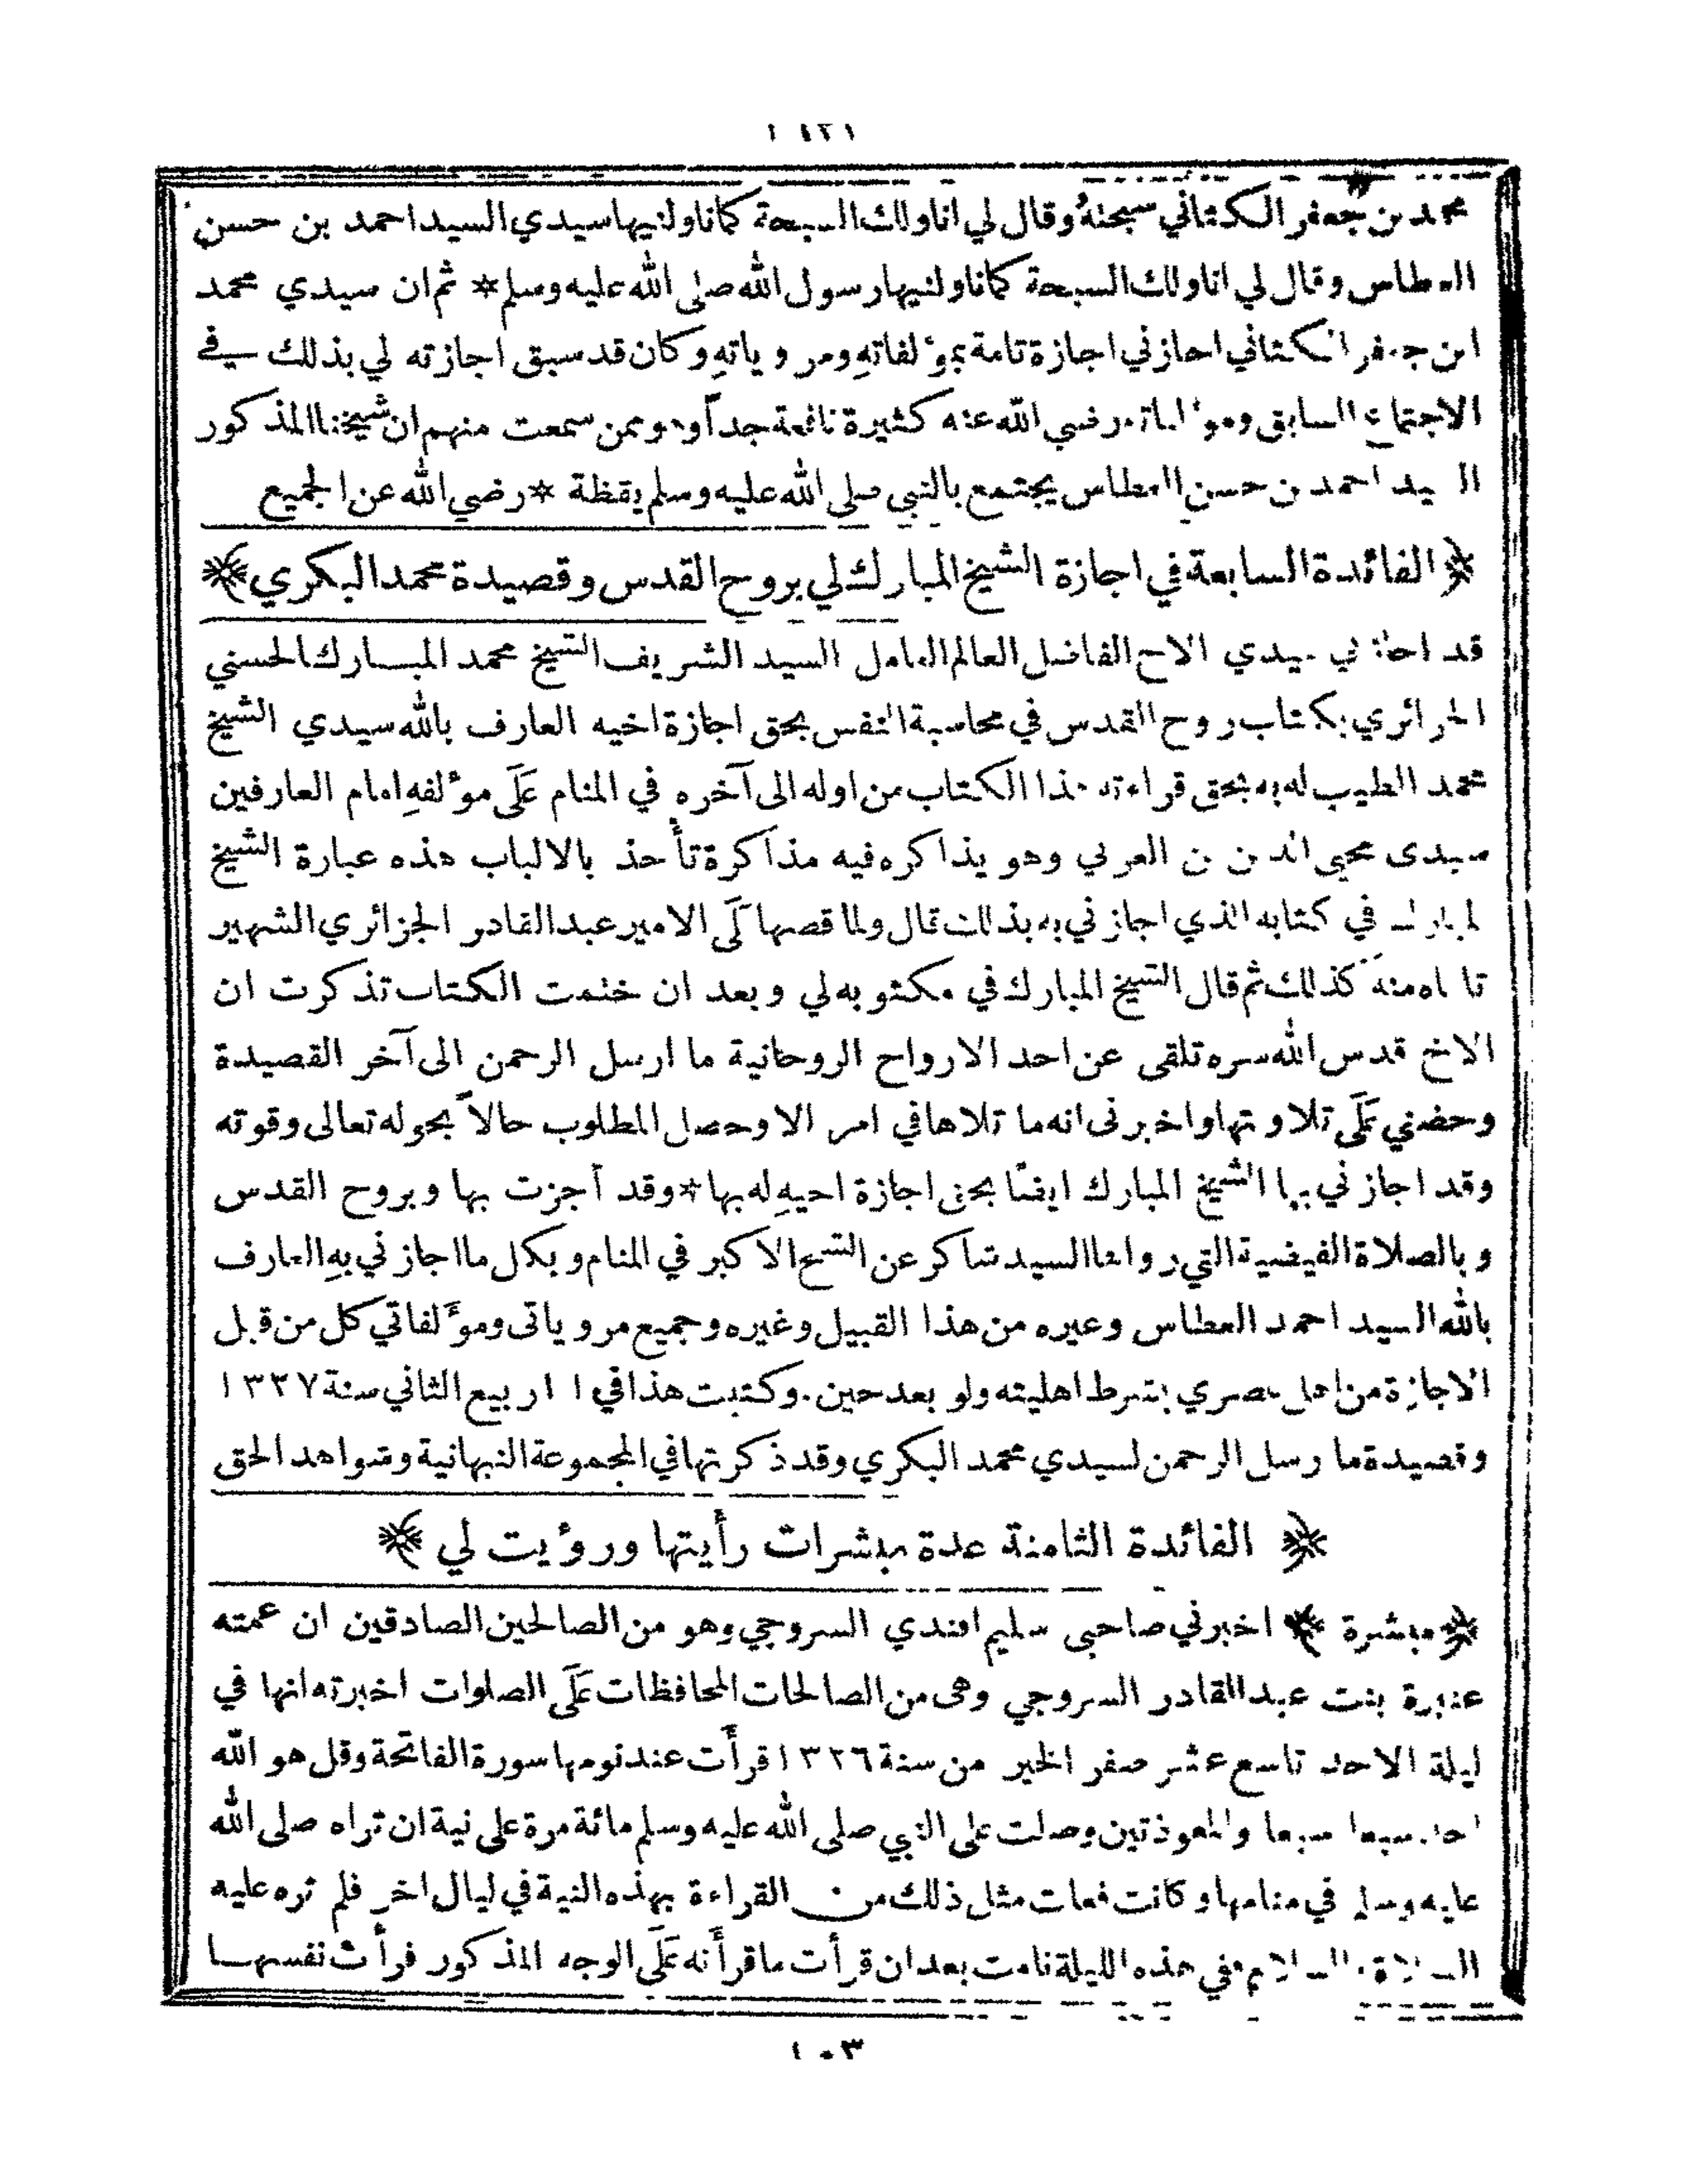 محمد بن جعفر الكتاني سبحته وقال لي اناولك السبحة كما ناولنيها سيدي السيد احمد بن حسن
العطاس وقال لي اناولك السبحة كما ناولنيها رسول الله صلى الله عليه وسلم * ثم ان سيدي محمد
ابن جعفر الكتاني اجازني اجازة تامة بمؤلفاتهِ ومروياتهِ وكان قد سبق اجازته لي بذلك في
الاجتماع السابق ومؤلفاته رضي الله عنه كثيرة نافعة جداً وهو ممن سمعت منهم ان شيخنا المذكور
السيد احمد بن حسن العطاس يجتمع بالنبي صلى الله عليه وسلم يقظة * رضي الله عن الجميع
﴿ الفائدة السابعة في اجازة الشيخ المبارك لي بروح القدس وقصيدة محمد البكري ﴾
قد اجازني سيدي الاخ الفاضل العالم العامل السيد الشريف الشيخ محمد المبارك الحسني
الجزائري بكتاب روح القدس في محاسبة النفس بحق اجازة اخيه العارف بالله سيدي الشيخ
محمد الطيب له به بحق قراءته هذا الكتاب من اوله الى آخره في المنام عَلَى مؤلفهِ امام العارفين
سيدى محيى الدين بن العربي وهو يذاكره فيه مذاكرة تأخذ بالالباب هذه عبارة الشيخ
المبارك في كتابه الذي اجازني به بذلك قال ولما قصها عَلَى الامير عبد القادر الجزائري الشهير
تلقاه منه كذلك ثم قال الشيخ المبارك في مكتوبه لي وبعد ان ختمت الكتاب تذكرت ان
الاخ قدس الله سره تلقى عن احد الارواح الروحانية ما ارسل الرحمن الى آخر القصيدة
وحضني عَلَى تلاوتها واخبرنى انه ما تلاها في امر الا وحصل المطلوب حالاً بحوله تعالى وقوته
وقد اجازني بها الشيخ المبارك ايضاً بحق اجازة اخيهِ له بها * وقد أجزت بها وبروح القدس
وبالصلاة الفيضية التي رواها السيد شاكر عن الشيخ الاكبر في المنام وبكل ما اجازني بهِ العارف
بالله السيد احمد العطاس وغيره من هذا القبيل وغيره وجميع مروياتى ومؤَلفاتي كل من قبل
الاجازة من اهل عصري بشرط اهليته ولو بعد حين . وكتبت هذا في ١١ ربيع الثاني سنة ١٣٢٧
وقصيدة ما رسل الرحمن لسيدي محمد البكري وقد ذكرتها في المجموعة النبهانية وشواهد الحق
﴿ الفائدة الثامنة عدة مبشرات رأيتها ورؤيت لي ﴾
﴿ مبشرة ﴾ اخبرني صاحبى سليم افندي السروجي وهو من الصالحين الصادقين ان عمته
عنبرة بنت عبد القادر السروجي وهى من الصالحات المحافظات عَلَى الصلوات اخبرته انها في
ليلة الاحد تاسع عشر صفر الخير من سنة ١٣٢٦ قرأت عند نومها سورة الفاتحة وقل هو الله
احد سبعا سبعا والمعوذتين وصلت على النبي صلى الله عليه وسلم مائة مرة على نية ان تراه صلى الله
عليه وسلم في منامها وكانت فعلت مثل ذلك من القراءة بهذه النية في ليال اخر فلم تره عليه
الصلاة والسلام ففي هذه الليلة نامت بعد ان قرأت ما قرأته عَلَى الوجه المذكور فرأت نفسها
١٠٣